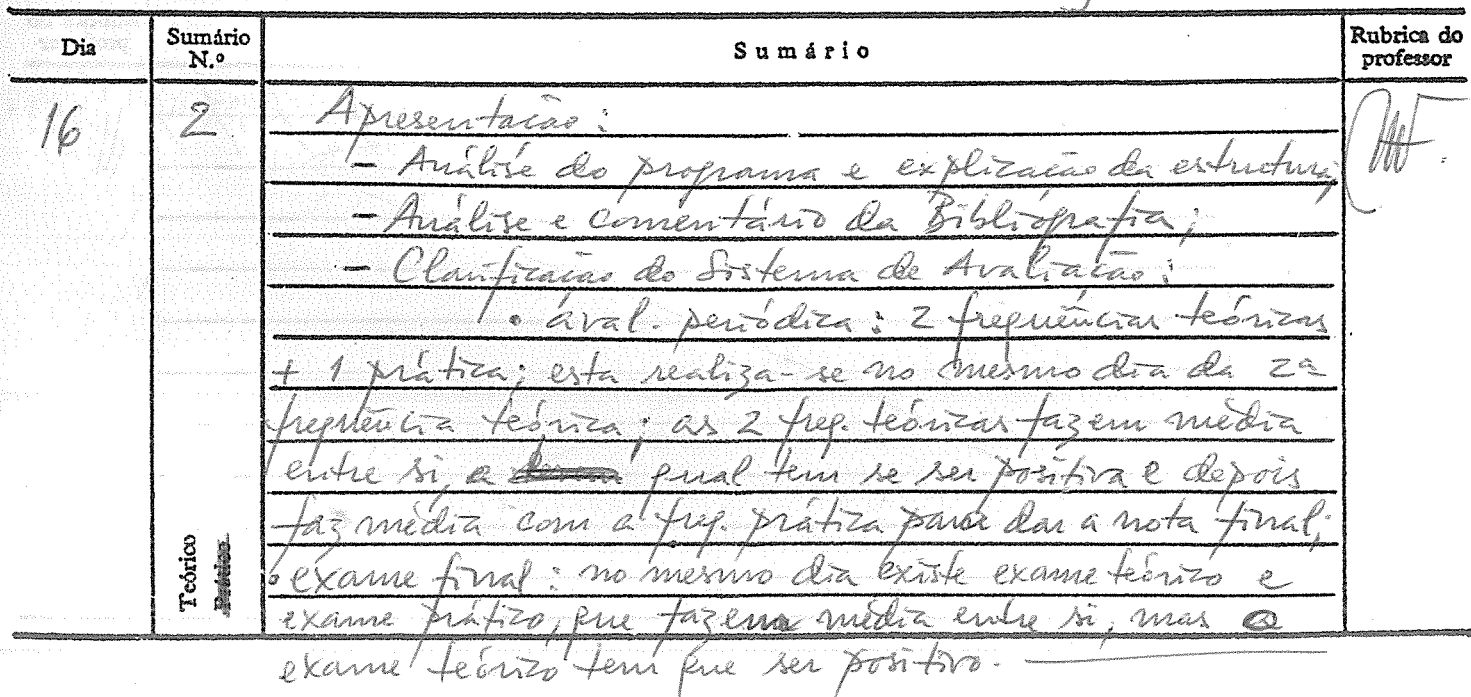 Dia Sumário N.º Sumário Rubrica do professor
16 2 Apresentação:
- Análise do programa e explicação da estrutura;
- Análise e comentário da Bibliografia;
- Clarificação do Sistema de Avaliação:
• aval. periódica: 2 frequências teóricas
+ 1 prática; esta realiza-se no mesmo dia da 2ª
frequência teórica; as 2 freq. teóricas fazem média
entre si, a qual tem se ser positiva e depois
faz média com a freq. prática para dar a nota final;
• exame final: no mesmo dia existe exame teórico e
exame prático, que fazem média entre si, mas o
exame teórico tem que ser positivo.
Teórico
Prático